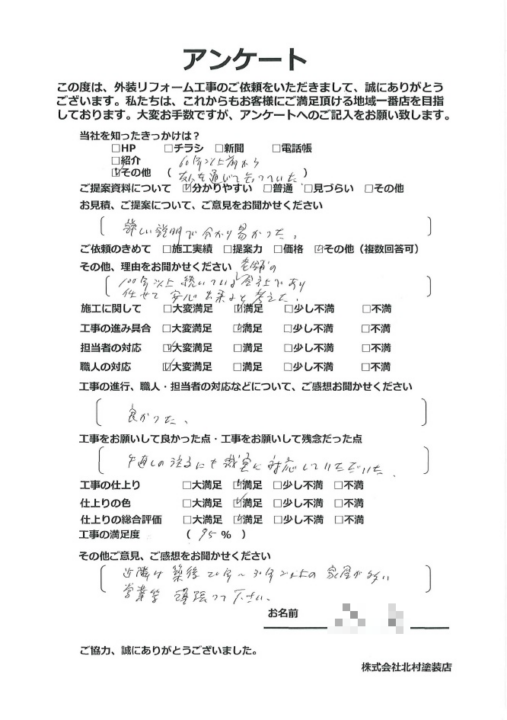 アンケート
この度は、外装リフォーム工事のご依頼をいただきまして、誠にありがとう
ございます。私たちは、これからもお客様にご満足頂ける地域一番店を目指
しております。大変お手数ですが、アンケートへのご記入をお願い致します。
当社を知ったきっかけは？
□HP □チラシ □新聞 □電話帳
□紹介 60年以上前から
☑その他 （ ）
ご提案資料について ☑分かりやすい □普通 □見づらい □その他
お見積、ご提案について、ご意見をお聞かせください
詳しい説明で分かり易かった。
ご依頼のきめて □施工実績 □提案力 □価格 ☑その他（複数回答可）
その他、理由をお聞かせください 老舗の
100年以上続いている会社であり
任せて安心出来ると考えた。
施工に関して □大変満足 ☑満足 □少し不満 □不満
工事の進み具合 □大変満足 ☑満足 □少し不満 □不満
担当者の対応 ☑大変満足 □満足 □少し不満 □不満
職人の対応 ☑大変満足 □満足 □少し不満 □不満
工事の進行、職人・担当者の対応などについて、ご感想お聞かせください
良かった、
工事をお願いして良かった点・工事をお願いして残念だった点
手直しの 対応していただいた。
工事の仕上り □大満足 ☑満足 □少し不満 □不満
仕上りの色 □大満足 ☑満足 □少し不満 □不満
仕上りの総合評価 □大満足 ☑満足 □少し不満 □不満
工事の満足度 （ 95 % ）
その他ご意見、ご感想をお聞かせください
近隣は築後20年〜30年以上の家屋が多い
営業等頑張って下さい。
お名前
ご協力、誠にありがとうございました。
株式会社北村塗装店